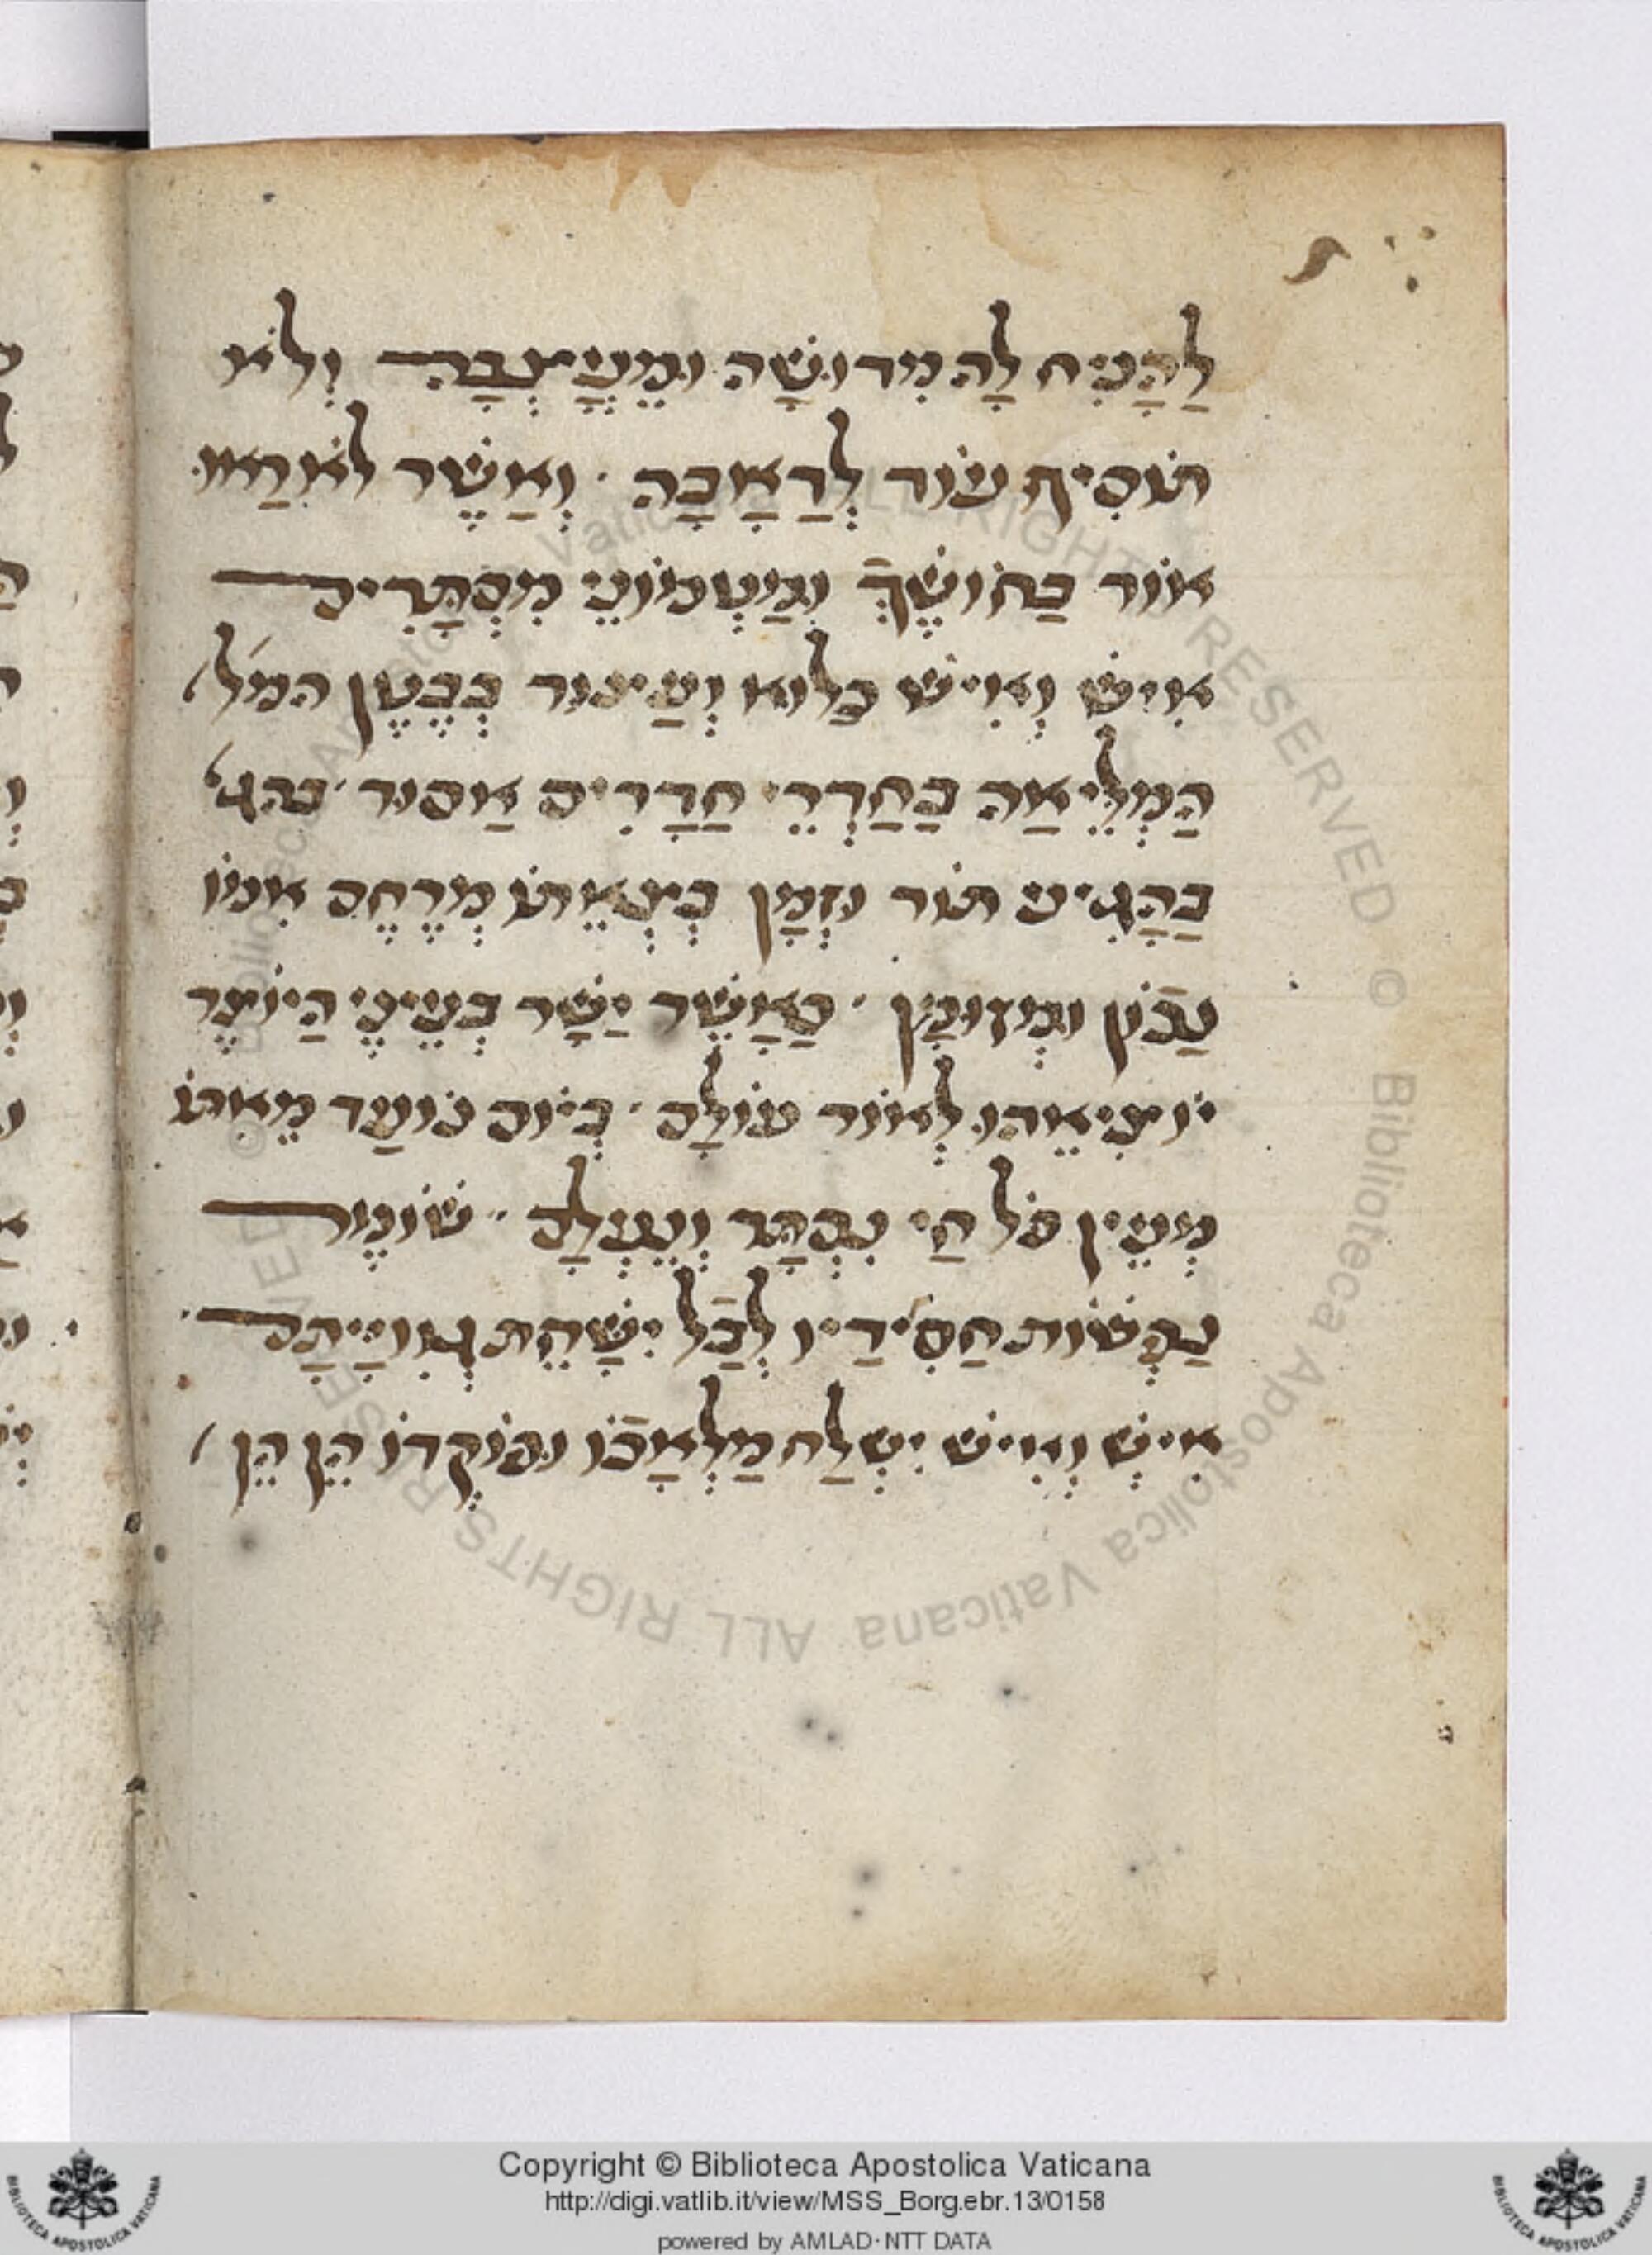 לַהָנִיח לָה מִדוּשָה וּמֵעֲיצְבָה וְלֹא
תוֹסִיף עוֹד לְדַאֲבָה · וַאֲשֶר לֹא רַאוּ
אוֹר בַחוֹשֶךְ וּמַטְמוֹנֵי מִסְתָרִים
אִיש וְאִיש כָלוּא וְעַיצוּר בְבֶטֶן המל
הַמְלֵיאַה בַחַדְרֵי חַדָרִים אַסוּר · בהגי
בַהָגִיע תוֹר וּזְמָן בְצְאֵתוֹ מְרֶחֶם אִמוֹ
נַכֹון וּמְזוּמָן · כַאֲשֶר יַשָר בְעֵינֵי הַיוֹצֶר
יוֹצִיאֵהוּ לְאוֹר עוֹלָם · בְיוֹם נוֹעַד מֶאִתוֹ
מְעֵין כֹל חַי נִסְתָר וְנֶעְלָם · שוֹמֵר
נַפְשוֹת חַסִידַיו לְבַל יִשָחֵת גְוִיָיתָם ·
אִיש וְאִיש יִשְלַח מַלְאָכוֹ וּפוֹקְדוֹ הֵן הֵן
Copyright © Biblioteca Apostolica Vaticana
http://digi.vatlib.it/view/MSS_Borg.ebr.13/0158
powered by AMLAD·NTT DATA